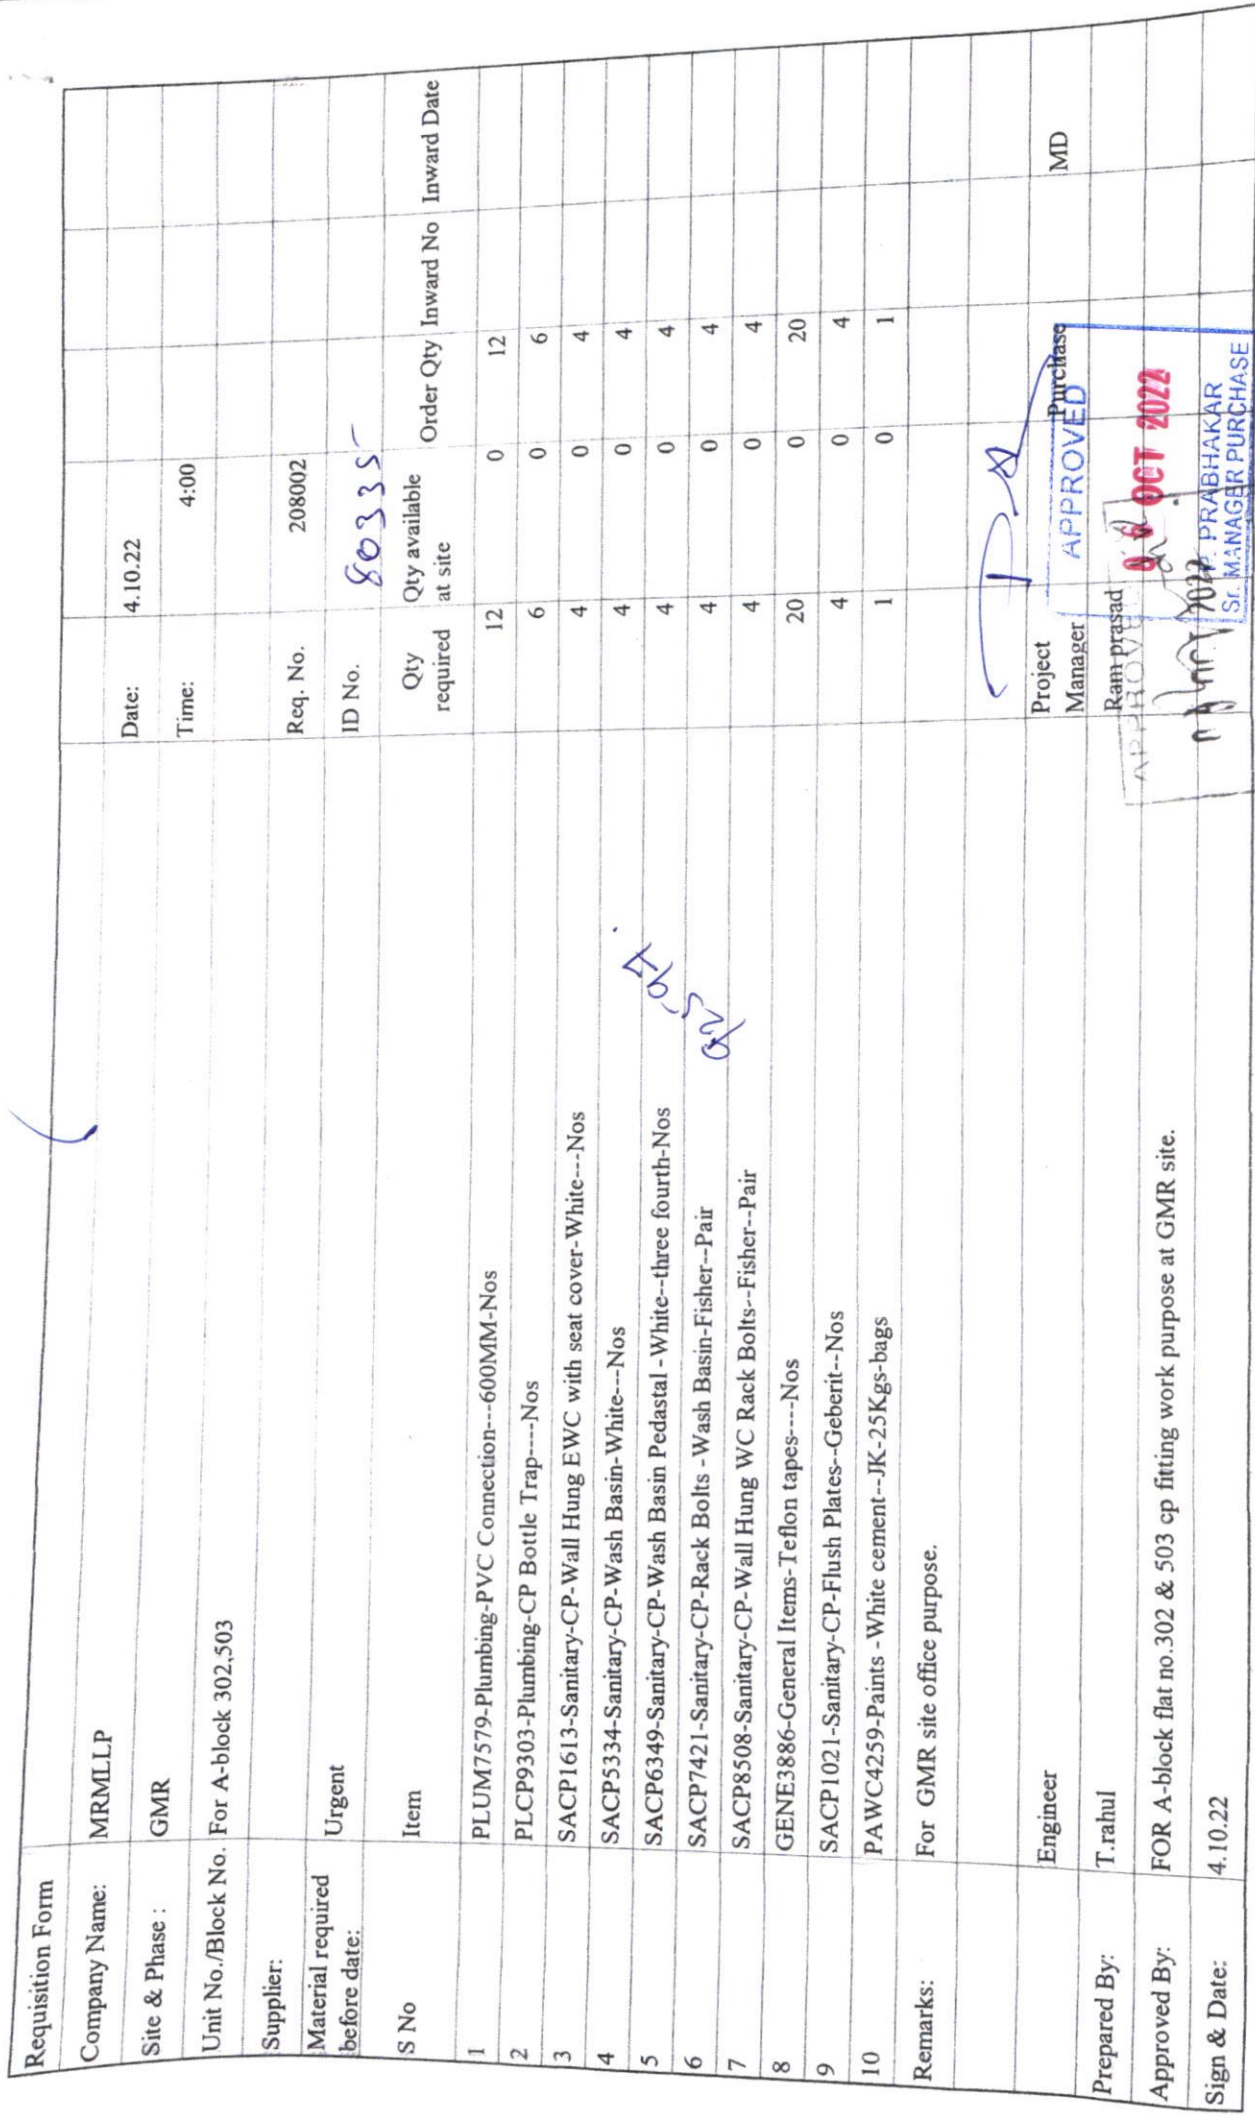 Requisition Form
Company Name: MRMLLP
Date: 4.10.22
Site & Phase : GMR
Time: 4:00
Unit No./Block No. For A-block 302,503
Supplier:
Req. No. 208002
Material required before date: Urgent
ID No. 80335
S No Item Qty required Qty available at site Order Qty Inward No Inward Date
1 PLUM7579-Plumbing-PVC Connection---600MM-Nos 12 0 12
2 PLCP9303-Plumbing-CP Bottle Trap----Nos 6 0 6
3 SACP1613-Sanitary-CP-Wall Hung EWC with seat cover-White---Nos 4 0 4
4 SACP5334-Sanitary-CP-Wash Basin-White---Nos 4 0 4
5 SACP6349-Sanitary-CP-Wash Basin Pedastal -White--three fourth-Nos 4 0 4
6 SACP7421-Sanitary-CP-Rack Bolts -Wash Basin-Fisher--Pair 4 0 4
7 SACP8508-Sanitary-CP-Wall Hung WC Rack Bolts--Fisher--Pair 4 0 4
8 GENE3886-General Items-Teflon tapes----Nos 20 0 20
9 SACP1021-Sanitary-CP-Flush Plates--Geberit--Nos 4 0 4
10 PAWC4259-Paints -White cement--JK-25Kgs-bags 1 0 1
Remarks: For GMR site office purpose.
Engineer Project Manager Purchase MD
Prepared By: T.rahul Ram prasad
Approved By: FOR A-block flat no.302 & 503 cp fitting work purpose at GMR site.
Sign & Date: 4.10.22
APPROVED
OCT 2022
P. PRABHAKAR
Sr. MANAGER PURCHASE
APPROVE
2022